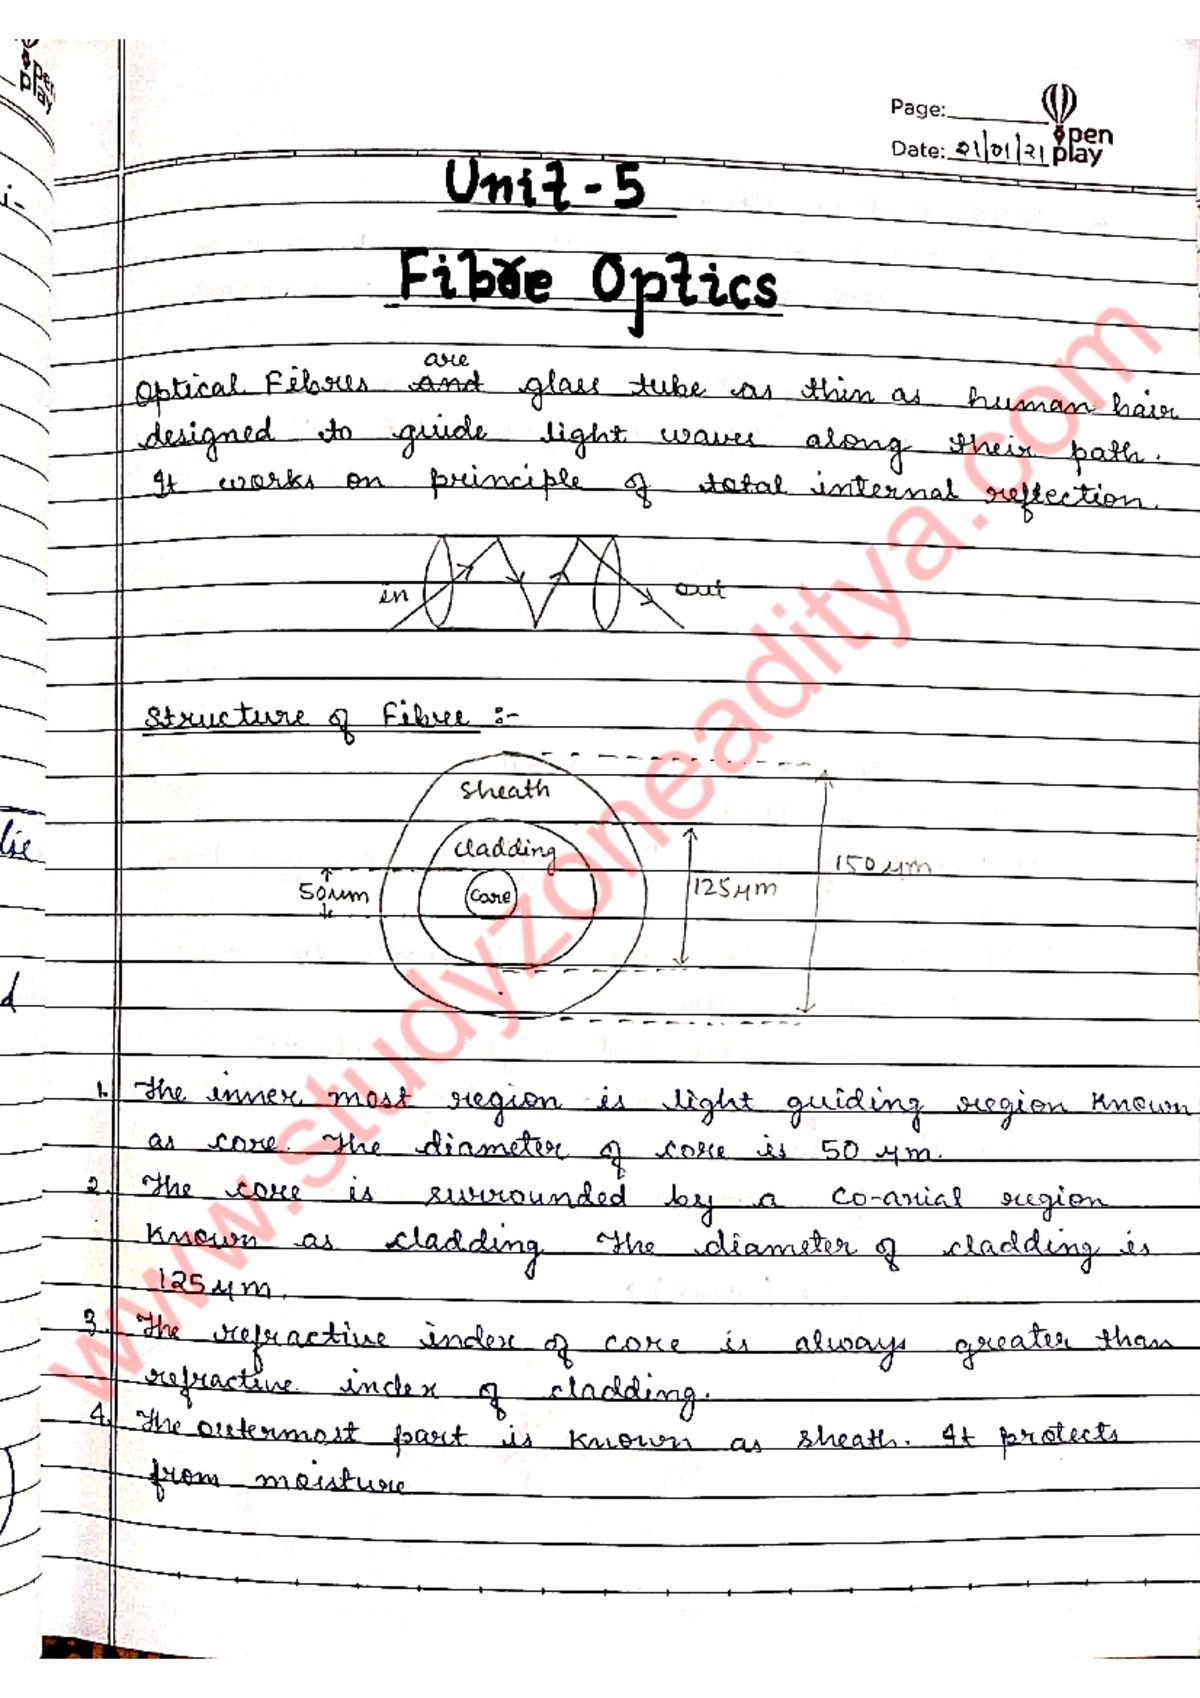 pen
play
Page:
open
Date: 21/01/21 play
i-
Unit-5
Fibre Optics
are
Optical Fibres and glass tube as thin as human hair
designed to guide light waves along their path.
It works on principle of total internal reflection.
in
out
Structure of Fibre :-
Sheath
Cladding
Core
50μm
125μm
150μm
1. The inner most region is light guiding region known
as core. The diameter of core is 50 μm.
2. The core is surrounded by a co-axial region
known as cladding The diameter of cladding is
125μm.
3. The refractive index of core is always greater than
refractive index of cladding.
4. The outermost part is known as sheath. It protects
from moisture
d
www.studyzoneaditya.com